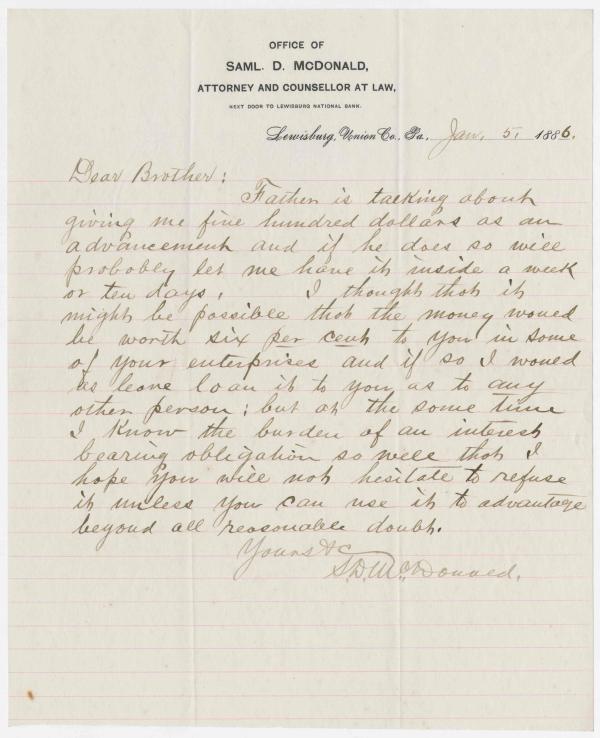 OFFICE OF
SAML. D. McDONALD,
ATTORNEY AND COUNSELLOR AT LAW,
NEXT DOOR TO LEWISBURG NATIONAL BANK.
Lewisburg, Union Co., Pa., Jan. 5, 1886.
Dear Brother:
Father is talking about
giving me five hundred dollars as an
advancement and if he does so will
probobly let me have it inside a week
or ten days. I thought that it
might be possible that the money would
be worth six per cent to you in some
of your enterprises and if so I would
as leave loan it to you as to any
other person; but at the same time
I know the burden of an interest
bearing obligation so well that I
hope you will not hesitate to refuse
it unless you can use it to advantage
beyond all reasonable doubt.
Yours &c
S. D. McDonald.